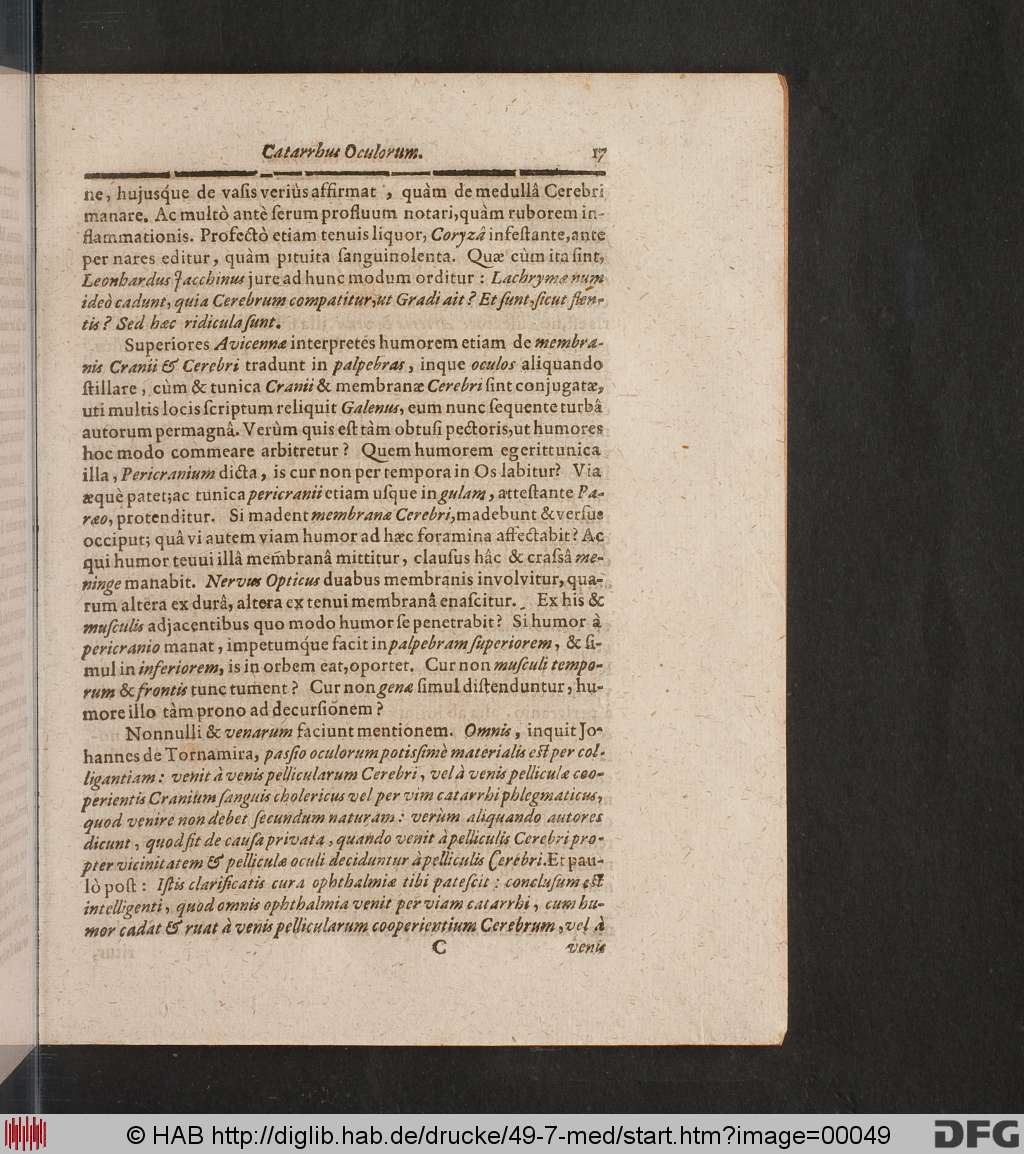 Catarrhus Oculorum. 17
ne, hujusque de vasis veriùs affirmat, quàm de medullâ Cerebri
manare. Ac multò antè serum profluum notari, quàm ruborem in-
flammationis. Profectò etiam tenuis liquor, Coryzâ infestante, ante
per nares editur, quàm pituita sanguinolenta. Quæ cùm ita sint,
Leonhardus Jacchinus jure ad hunc modum orditur: Lachrymæ num
ideò cadunt, quia Cerebrum compatitur, ut Gradi ait? Et sunt, sicut flen-
tis? Sed hæc ridicula sunt.
Superiores Avicennæ interpretes humorem etiam de membra-
nis Cranii & Cerebri tradunt in palpebras, inque oculos aliquando
stillare, cùm & tunica Cranii & membranæ Cerebri sint conjugatæ,
uti multis locis scriptum reliquit Galenus, eum nunc sequente turbâ
autorum permagnâ. Verùm quis est tàm obtusi pectoris, ut humores
hoc modo commeare arbitretur? Quem humorem egerit tunica
illa, Pericranium dicta, is cur non per tempora in Os labitur? Via
æquè patet; ac tunica pericranii etiam usque in gulam, attestante Pa-
ræo, protenditur. Si madent membranæ Cerebri, madebunt & versus
occiput; quâ vi autem viam humor ad hæc foramina affectabit? Ac
qui humor teuui illâ membranâ mittitur, clausus hâc & crassâ me-
ninge manabit. Nervus Opticus duabus membranis involvitur, qua-
rum altera ex durâ, altera ex tenui membranâ enascitur. Ex his &
musculis adjacentibus quo modo humor se penetrabit? Si humor à
pericranio manat, impetumque facit in palpebram superiorem, & si-
mul in inferiorem, is in orbem eat, oportet. Cur non musculi tempo-
rum & frontis tunc tument? Cur non genæ simul distenduntur, hu-
more illo tàm prono ad decursionem?
Nonnulli & venarum faciunt mentionem. Omnis, inquit Jo-
hannes de Tornamira, passio oculorum potissimè materialis est per col-
ligantiam: venit à venis pellicularum Cerebri, vel à venis pelliculæ coo-
perientis Cranium sanguis cholericus vel per vim catarrhi phlegmaticus,
quod venire non debet secundum naturam: verùm aliquando autores
dicunt, quod fit de causa privata, quando venit à pelliculis Cerebri pro-
pter vicinitatem & pelliculæ oculi deciduntur à pelliculis Cerebri. Et pau-
lò post: Istis clarificatis cura ophthalmiæ tibi patescit: conclusum est
intelligenti, quod omnis ophthalmia venit per viam catarrhi, cum hu-
mor cadat & ruat à venis pellicularum cooperientium Cerebrum, vel à
C venis
© HAB http://diglib.hab.de/drucke/49-7-med/start.htm?image=00049
DFG